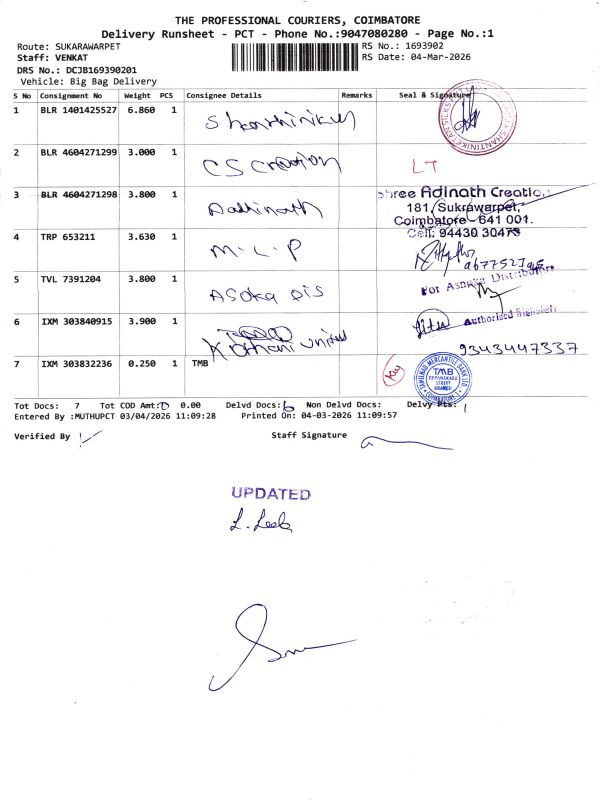 THE PROFESSIONAL COURIERS, COIMBATORE
Delivery Runsheet - PCT - Phone No.:9047080280 - Page No.:1
Route: SUKARAWARPET
RS No.: 1693902
Staff: VENKAT
RS Date: 04-Mar-2026
DRS No.: DCJB169390201
Vehicle: Big Bag Delivery
S No Consignment No Weight PCS Consignee Details Remarks Seal & Signature
1 BLR 1401425527 6.860 1
2 BLR 4604271299 3.000 1 CS Creation LT
3 BLR 4604271298 3.800 1
Shree Adinath Creation
181, Sukrawarpet,
Coimbatore - 641 001.
Cell: 94430 30473
4 TRP 653211 3.630 1 M.L.P
5 TVL 7391204 3.800 1 ASOKA DIS
For Asoka Distributors
6 IXM 303840915 3.900 1 Kothari United
Authorised Signatory
9343447337
7 IXM 303832236 0.250 1 TMB
TAMILNAD MERCANTILE BANK LTD
TMB
OPPANAKARA
STREET
BRANCH
COIMBATORE
Tot Docs: 7 Tot COD Amt: 0.00 Delvd Docs: 6 Non Delvd Docs: Delvy Pts: 1
Entered By :MUTHUPCT 03/04/2026 11:09:28 Printed On: 04-03-2026 11:09:57
Verified By
Staff Signature
UPDATED